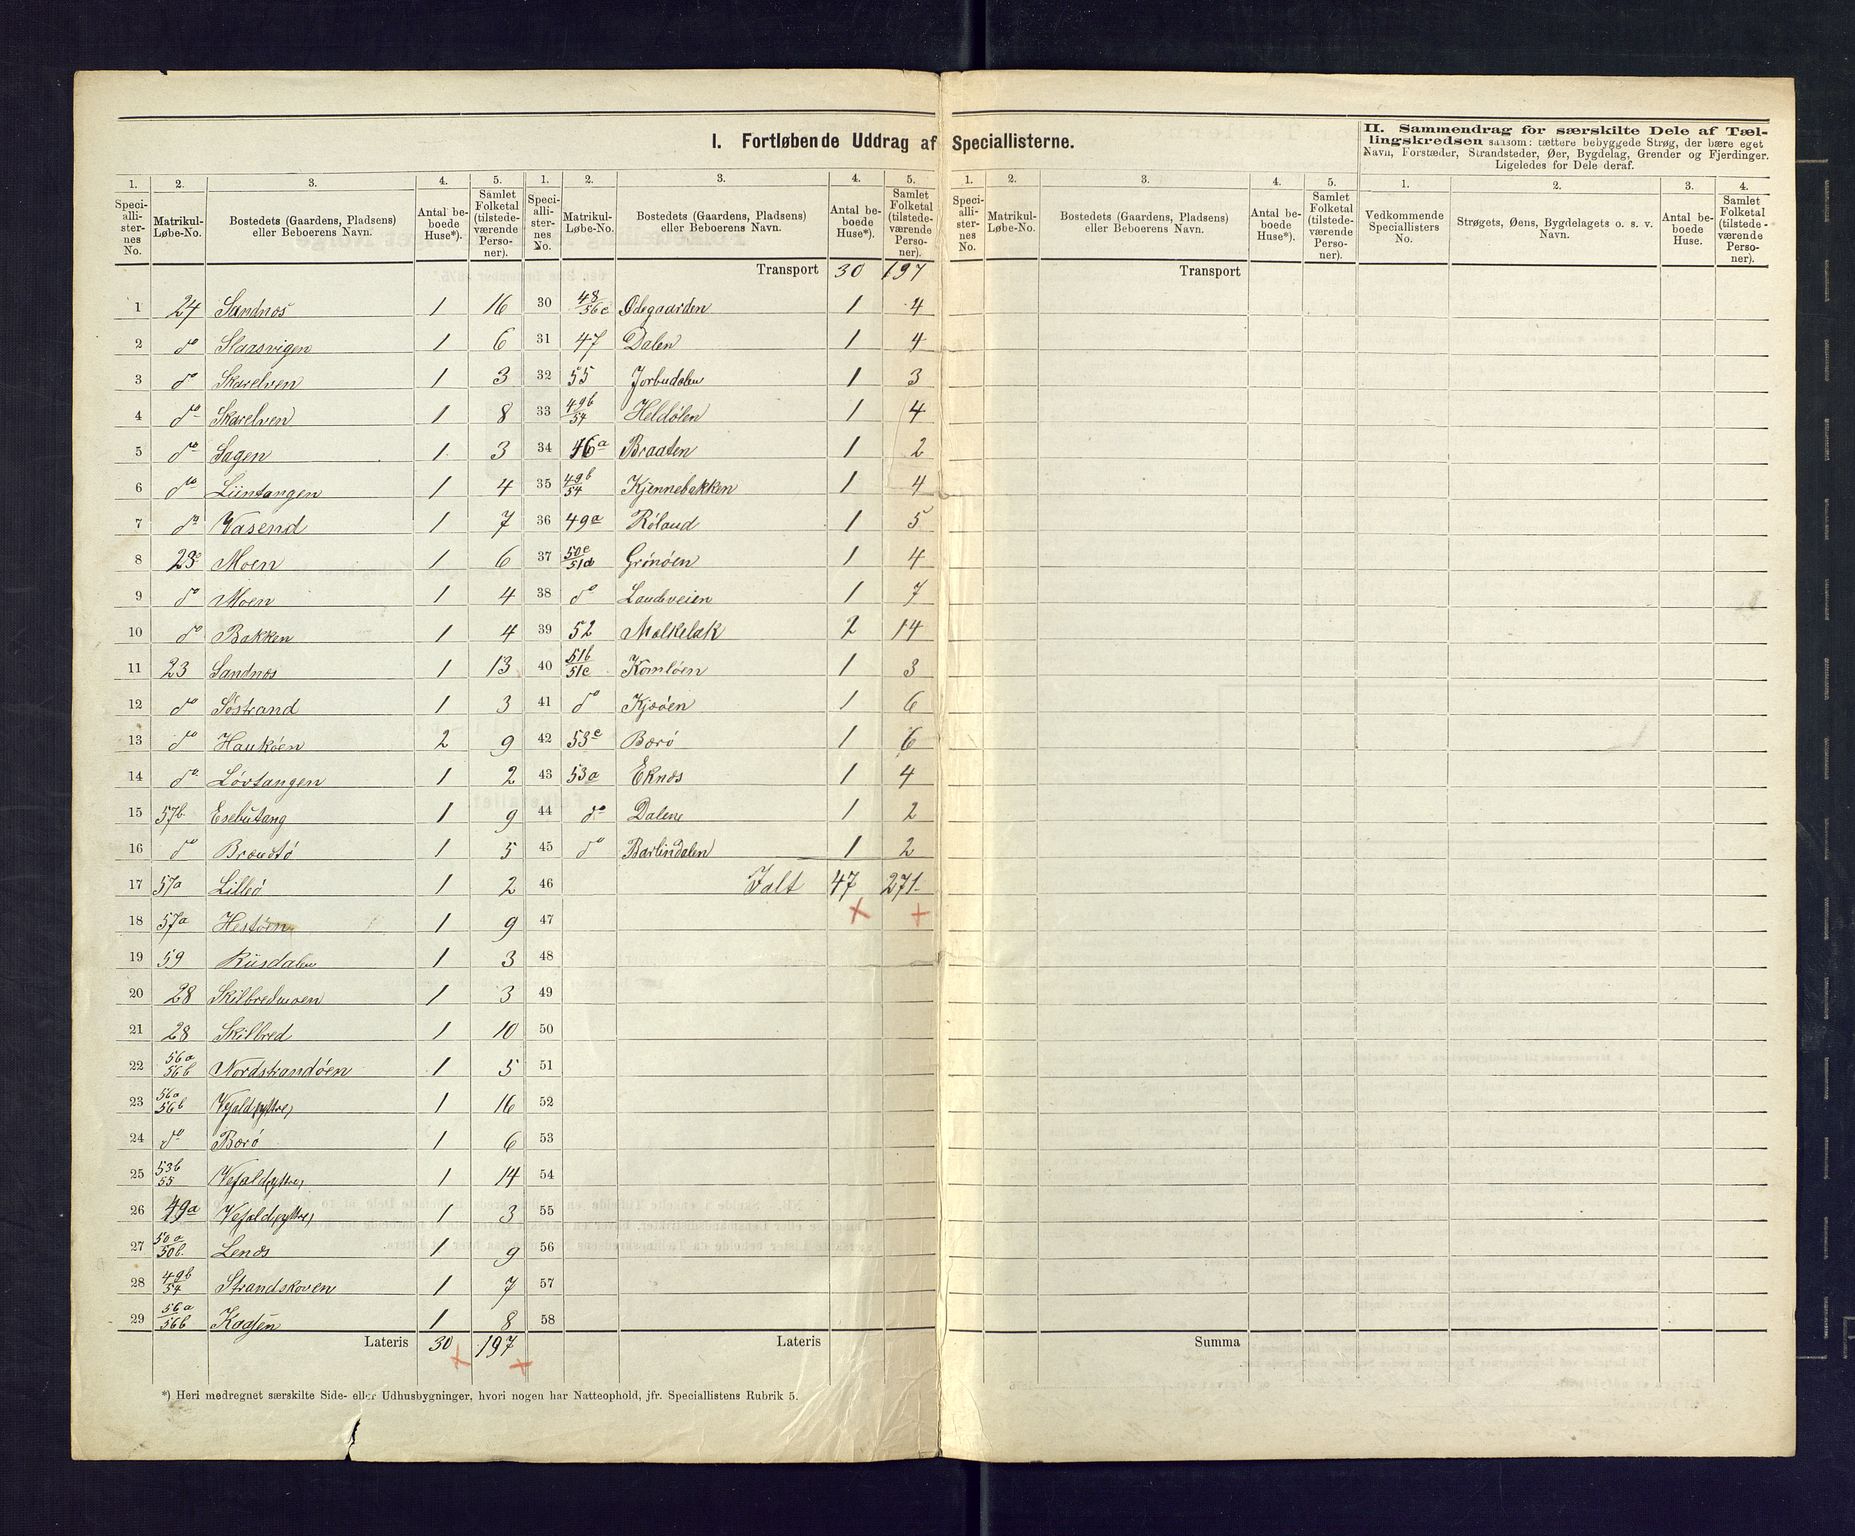 I. Fortløbende Uddrag af Speciallisterne.
II. Sammendrag for særskilte Dele af Tællingskredsen saasom: tættere bebyggede Strøg, der bære eget Navn, Forstæder, Strandsteder, Øer, Bygdelag, Grender og Fjerdinger. Ligeledes for Dele deraf.
1. 2. 3. 4. 5. 1. 2. 3. 4. 5. 1. 2. 3. 4. 5. 1. 2. 3. 4.
Speciallisternes No. Matrikul-Løbe-No. Bostedets (Gaardens, Pladsens) eller Beboerens Navn. Antal beboede Huse*). Samlet Folketal (tilstedeværende Personer).
Speciallisternes No. Matrikul-Løbe-No. Bostedets (Gaardens, Pladsens) eller Beboerens Navn. Antal beboede Huse*). Samlet Folketal (tilstedeværende Personer).
Speciallisternes No. Matrikul-Løbe-No. Bostedets (Gaardens, Pladsens) eller Beboerens Navn. Antal beboede Huse*). Samlet Folketal (tilstedeværende Personer).
Vedkommende Speciallisters No. Strøgets, Øens, Bygdelagets o. s. v. Navn. Antal beboede Huse. Samlet Folketal (tilstedeværende Personer).
1 24 Sandnæs 1 16
2 do Slaasvigen 1 6
3 do Skarelven 1 3
4 do Skarelven 1 8
5 do Sagen 1 3
6 do Liintangen 1 4
7 do Vasend 1 7
8 23c Moen 1 6
9 do Moen 1 4
10 do Bakken 1 4
11 23 Sandnæs 1 13
12 do Søstrand 1 3
13 do Haukøen 2 9
14 do Løvtangen 1 2
15 57b Esebutang 1 9
16 do Brændtø 1 5
17 57a Lilleø 1 2
18 57a Hestøen 1 9
19 59 Riisdalen 1 3
20 28 Skilbredmoen 1 3
21 28 Skilbred 1 10
22 56a/56b Nordstrandøen 1 5
23 56a/56b Vefald, yttre, 1 16
24 do Bærø 1 6
25 53b/55 Vefald, yttre, 1 14
26 49a Vefald, yttre, 1 3
27 50a/50b. Lenæs 1 9
28 49b/54 Strandskoven 1 7
29 56a/56b Kaasen 1 8
Lateris 30 197
Transport 30 197
30 48/56c Ødegaarden 1 4
31 47 Dalen 1 4
32 55 Jorbudalen 1 3
33 49b/54 Heldølen 1 4
34 46a Braaten 1 2
35 49b/54 Kjennebakken 1 4
36 49a Røland 1 5
37 50c/51d Grønøen 1 4
38 do Landeveien 1 7
39 52 Mælkelak 2 14
40 51b/51c Komløen 1 3
41 do Kjøøen 1 6
42 53c Bærø 1 6
43 53a Eknæs 1 4
44 do Dalene 1 2
45 do Barlindalen 1 2
46 Ialt 47 271
47
48
49
50
51
52
53
54
55
56
57
58
Lateris
Transport
Summa
*) Heri medregnet særskilte Side- eller Udhusbygninger, hvori nogen har Natteophold, jfr. Speciallistens Rubrik 5.